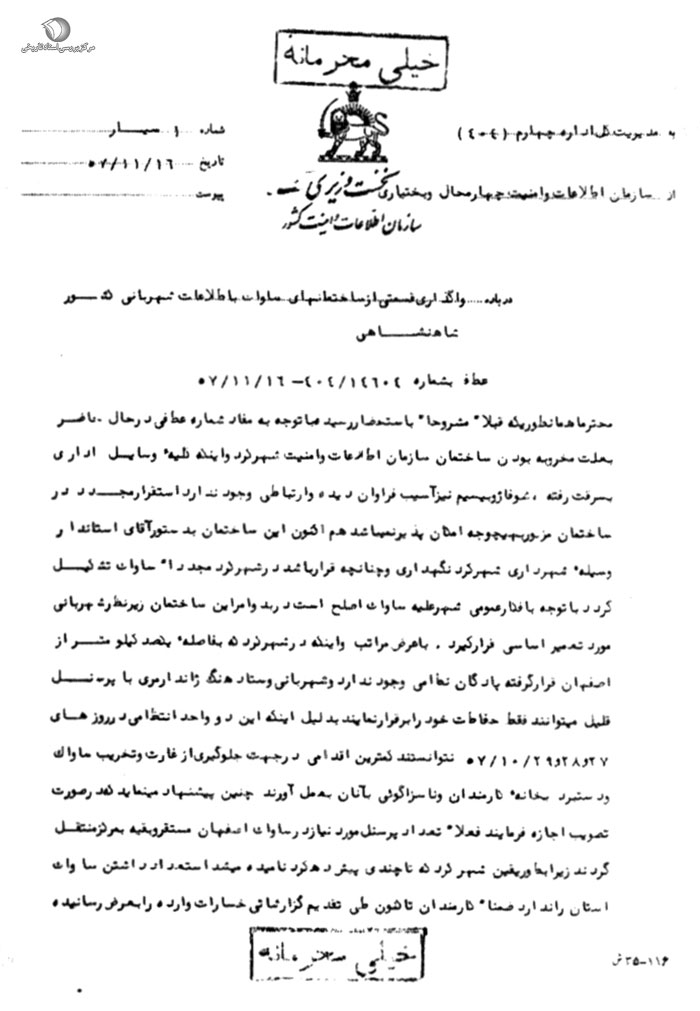 مرکز بررسی اسناد تاریخی
خیلی محرمانه
به مدیریت کل اداره چهارم (۴۰۴)
شماره ۱ سیار
تاریخ ۵۷/۱۱/۱۶
از سازمان اطلاعات وامنیت چهارمحال وبختیاری
پیوست
نخست وزیری
سازمان اطلاعات و امنیت کشور
درباره ..... واگذاری قسمتی ازساختمانهای ساواک باطلاعات شهربانی کشور
شاهنشاهی
عطف بشماره ۴۰۴/۱۴۶۰۴ – ۵۷/۱۱/۱۶
محترما همانطوریکه قبلاً مشروحاً باستحضار رسیده باتوجه به مفاد شماره عطفی درحال حاضر
بعلت مخروبه بودن ساختمان سازمان اطلاعات وامنیت شهرکرد واینکه کلیه وسایل اداری
بسرقت رفته ، شوفاژ وبیسیم نیزآسیب فراوان دیده وارتباطی وجود ندارد استقرارمجدد در
ساختمان مزبوربهیچوجه امکان پذیرنمیباشد هم اکنون این ساختمان بدستورآقای استاندار
وسیله شهرداری شهرکرد نگهداری وچنانچه قرارباشد درشهرکرد مجدداً ساواک تشکیل
گردد باتوجه بافکارعمومی شهرعلیه ساواک اصلح است دربدوامراین ساختمان زیرنظرشهربانی
مورد تعمیر اساسی قرارگیرد . باعرض مراتب واینکه درشهرکرد که بفاصله یکصد کیلو متر از
اصفهان قرارگرفته پادگان نظامی وجود ندارد وشهربانی وستاد هنگ ژاندارمری با پرسنل
قلیل میتوانند فقط حفاظت خود را برقرارنمایند بدلیل اینکه این دو واحد انتظامی درروزهای
۲۷و۲۸و۵۷/۱۰/۲۹ نتوانستند کمترین اقدامی درجهت جلوگیری ازغارت وتخریب ساواک
ودستبرد بخانه کارمندان وناسزاگوئی بآنان بعمل آورند چنین پیشنهاد مینماید که درصورت
تصویب اجازه فرمایند فعلاً تعداد پرسنل مورد نیازدرساواک اصفهان مستقروبقیه بمرکزمنتقل
گردند زیرا بطوریقین شهرکرد که تاچندی پیش دهکرد نامیده میشد استعداد داشتن ساواک
استان راندارد ضمناً کارمندان تاکنون طی تقدیم گزارشاتی خسارات وارده رابعرض رسانیده
خیلی محرمانه
۳۵-۱۱۶ ش